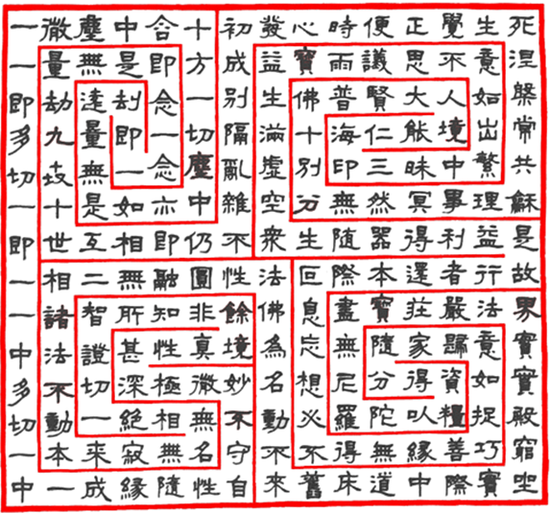 一微塵中含十初發心時便正覺生死
一量無是即方成益寶雨議思不意涅
即劫遠劫念一別生佛普賢大人如槃
多九量即一切隔滿十海仁能境出常
切世無一念塵亂虛別印三昧中繁共
一十是如亦中雜空分無然冥事理穌
即世互相即仍不眾生隨器得利益是
一相二無融圓性法叵際本還者行故
一諸智所知非餘佛息盡寶莊嚴法界
中法證甚性真境為忘無隨家歸意實
多不切深極微妙名想尼分得資如實
切動一絕相無不動必羅陀以糧捉殿
一本來寂無名守不不得無緣善巧窮
中一成緣隨性自來舊床道中際實坐